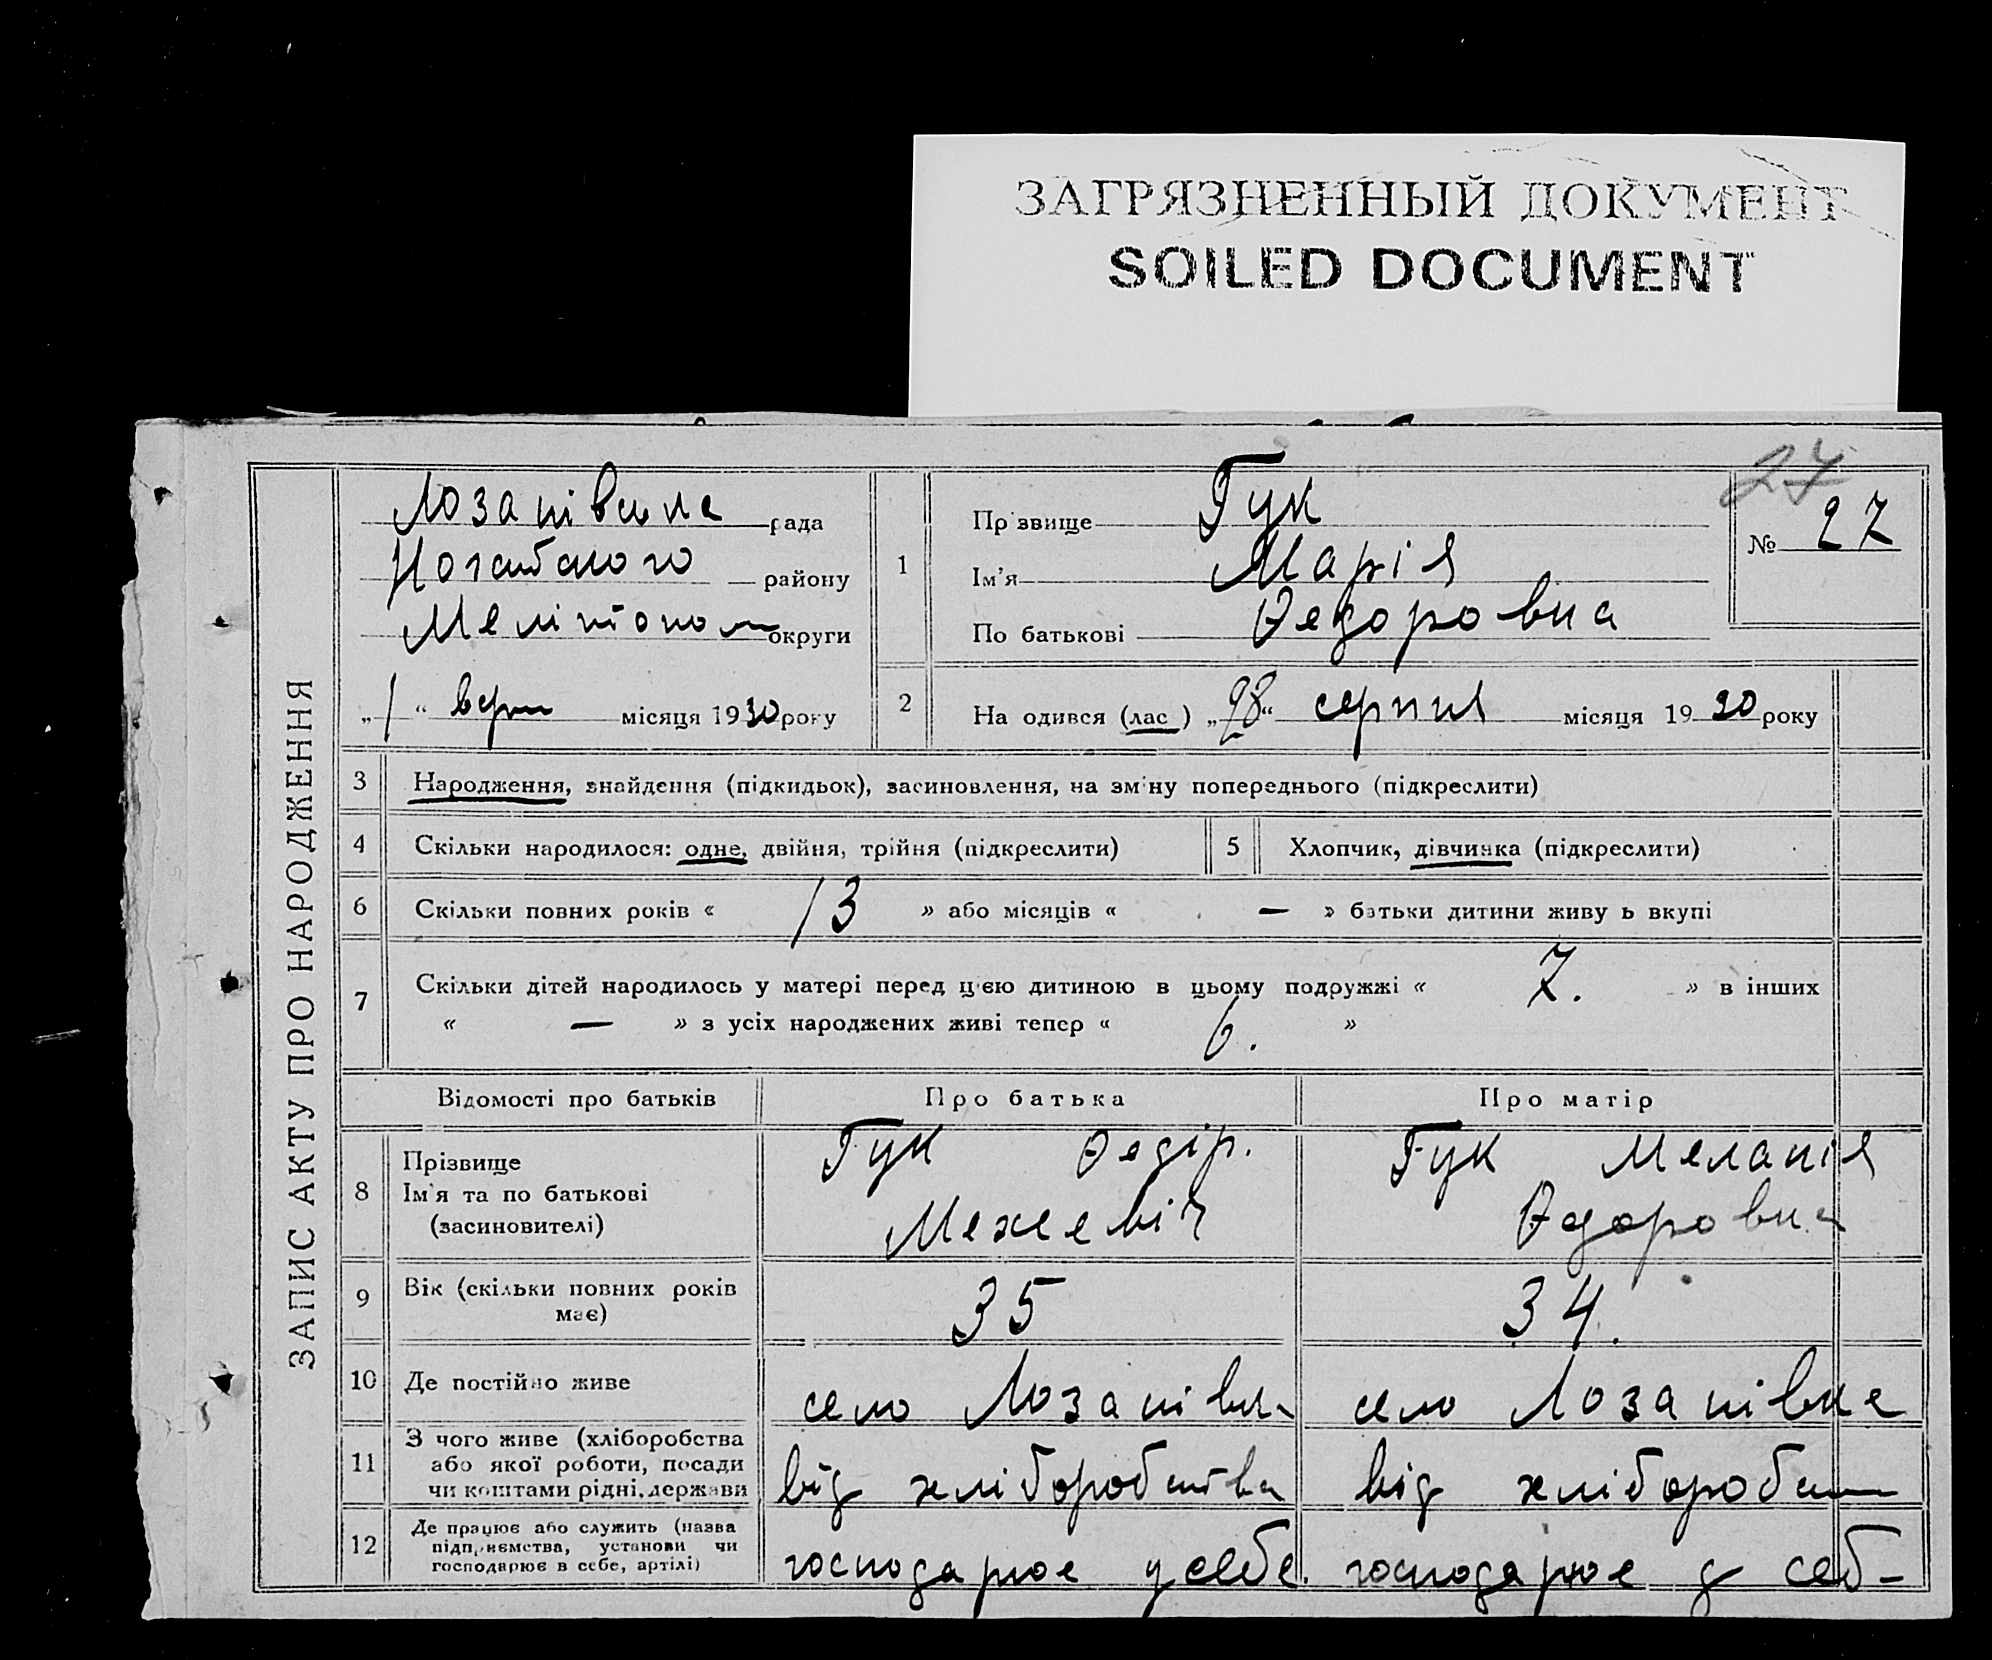 ЗАГРЯЗНЕННЫЙ ДОКУМЕНТ
SOILED DOCUMENT
27
ЗАПИС АКТУ ПРО НАРОДЖЕННЯ
рада
району
Мелітопол округи
„1“ верес місяця 1930 року
1
Прізвище Гук
Ім'я Марія
По батькові Федоровна
№ 27
2
На одився (лас ) „28“ серпня місяця 1930 року
3 Народження, знайдення (підкидьок), засиновлення, на зміну попереднього (підкреслити)
4 Скільки народилося: одне, двійня, трійня (підкреслити)
5 Хлопчик, дівчинка (підкреслити)
6 Скільки повних років « 13 » або місяців « — » батьки дитини живуть вкупі
7 Скільки дітей народилось у матері перед цією дитиною в цьому подружжі « 7. » в інших
« — » з усіх народжених живі тепер « 6. »
Відомості про батьків Про батька Про матір
8 Прізвище
Ім'я та по батькові
(засиновителі)
Гук Федір.
Гук Меланія
Федоровна
9 Вік (скільки повних років
має)
35 34.
10 Де постійно живе село село
11 З чого живе (хліборобства
або якої роботи, посади
чи коштами рідні, держави
від хліборобства від хлібороб
12 Де працює або служить (назва
підприємства, установи чи
господарює в себе, артілі)
господарює у себе. господарює у себ-